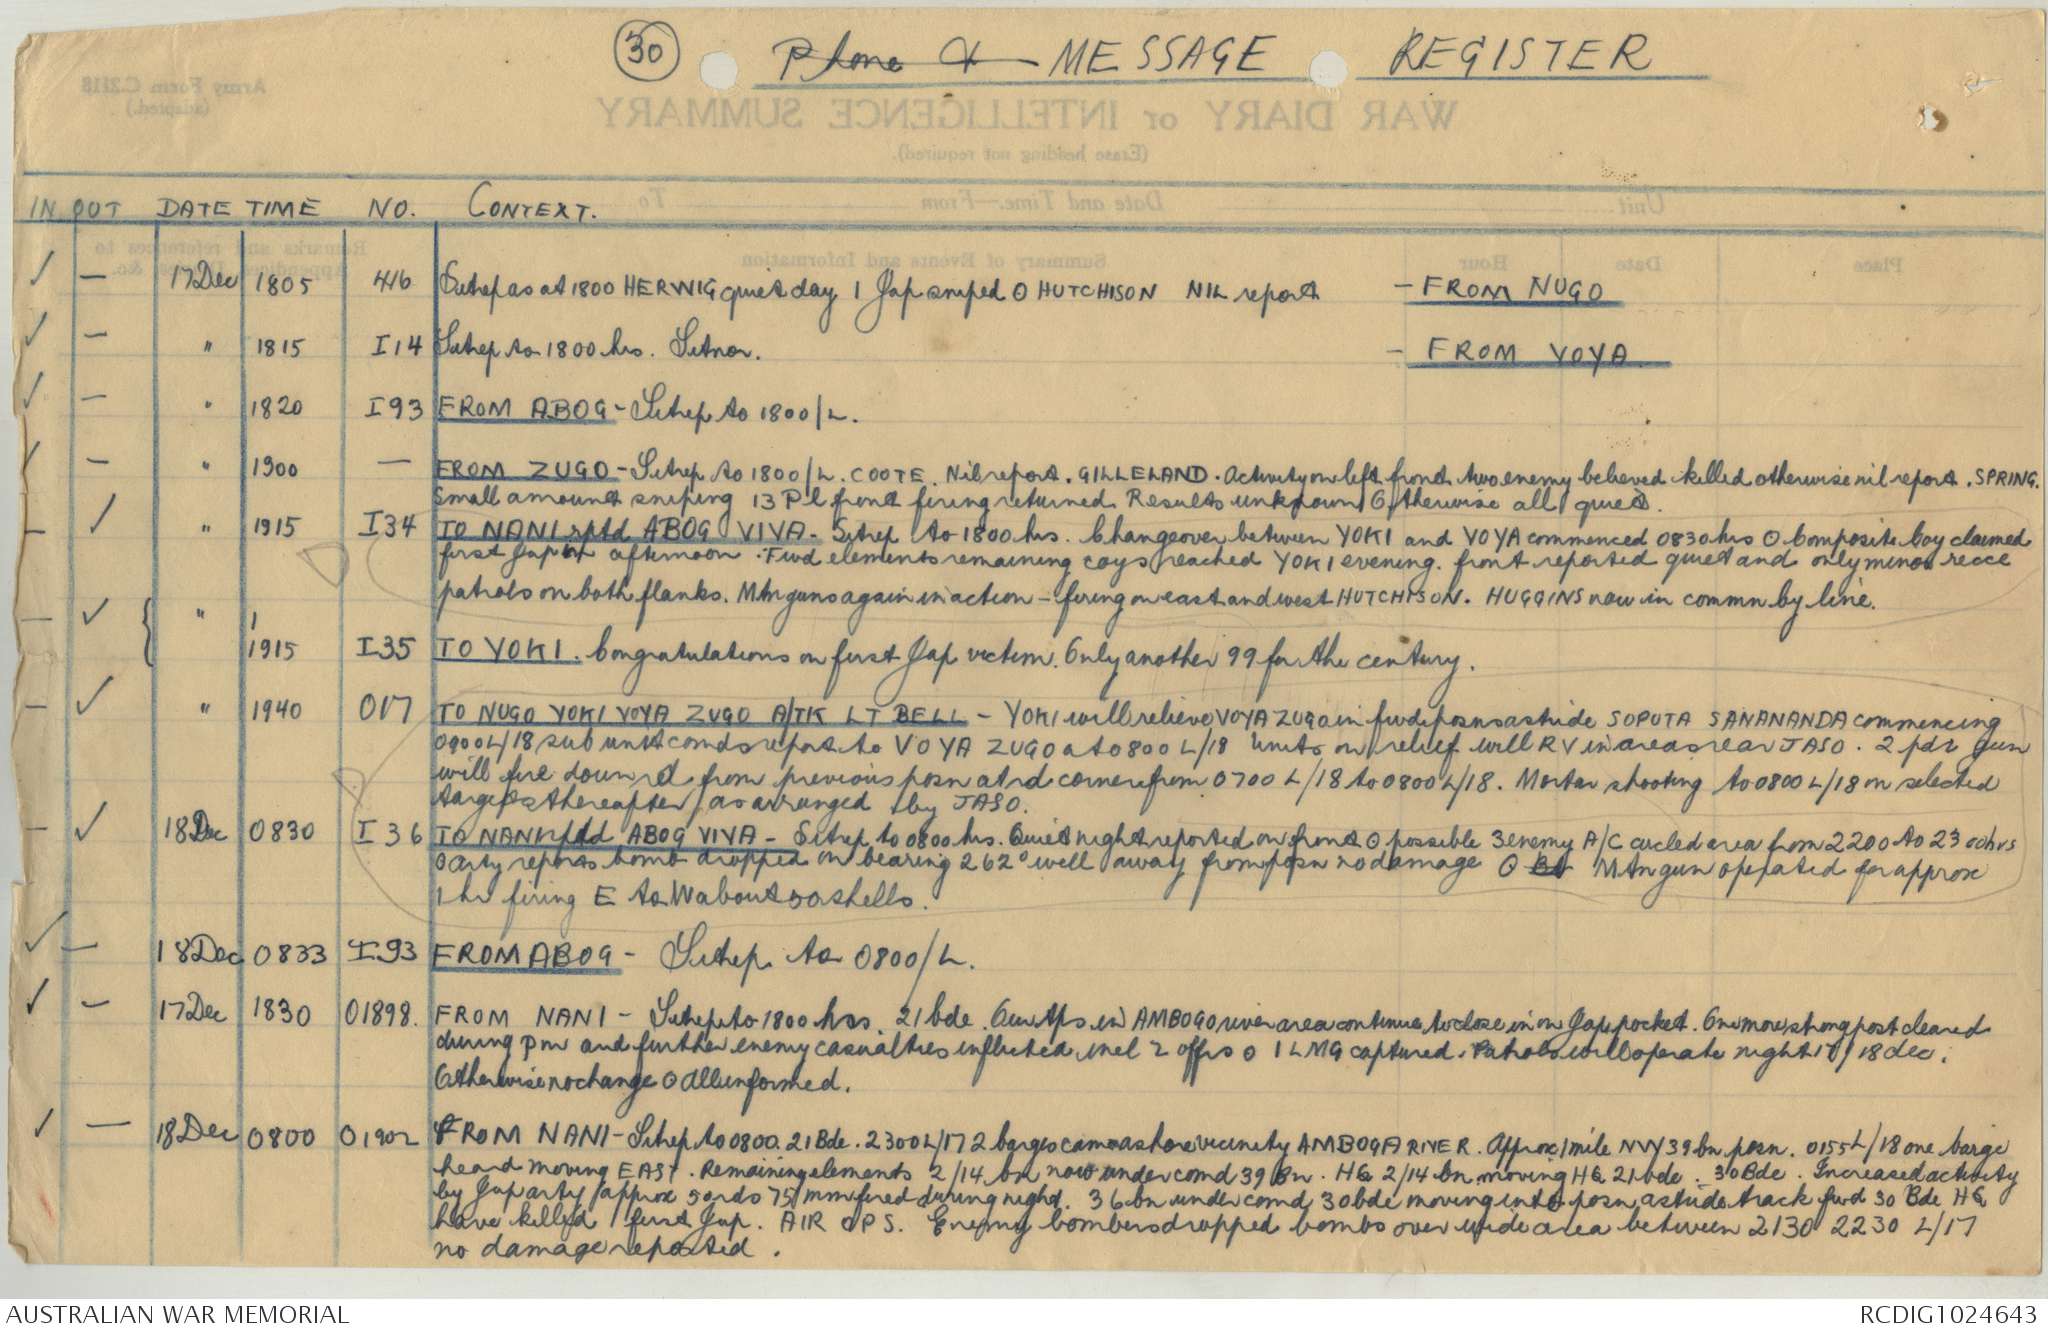 30
Phone & MESSAGE REGISTER
Army Form C.2118
(adapted.)
WAR DIARY or INTELLIGENCE SUMMARY
(Erase heading not required).
IN OUT DATE TIME NO. CONTEXT.
Unit Date and Time.—From To
Place Date Hour Summary of Events and Information Remarks and references to
✓ — 17 Dec 1805 416 Sitrep as at 1800 HERWIG quiet day 1 Jap sniped O HUTCHISON NIL report - FROM NUGO
✓ — " 1815 I14 Sitrep to 1800 hrs. Sitnor. - FROM VOYA
✓ — " 1820 I93 FROM ABOG - Sitrep to 1800/L.
✓ — " 1900 — FROM ZUGO - Sitrep to 1800/L. COOTE. Nil report. GILLELAND. Activity on left front two enemy believed killed otherwise nil report. SPRING.
Small amount sniping 13 Pl front firing returned. Results unknown Otherwise all quiet.
— ✓ " 1915 I34 TO NANI rptd ABOG VIVA - Sitrep to 1800 hrs. Changeover between YOKI and VOYA commenced 0830 hrs O Composite Coy claimed
first Jap in afternoon. Fwd elements remaining coys reached YOKI evening. front reported quiet and only minor recce
patrols on both flanks. Mtn guns again in action - firing on east and west HUTCHISON. HUGGINS now in commn by line.
— ✓ "
1915 I35 TO YOKI. Congratulations on first Jap victim. Only another 99 for the century.
— ✓ " 1940 O17 TO NUGO YOKI VOYA ZUGO A/TK LT BELL - YOKI will relieve VOYA ZUGO in fwd posns astride SOPUTA SANANANDA commencing
0900L/18 sub unit comds report to VOYA ZUGO at 0800 L/18 Units on relief will RV in areas rear JASO. 2 pdr gun
will fire down rd from previous posn at rd corner from 0700 L/18 to 0800 L/18. Mortar shooting to 0800 L/18 on selected
targets thereafter as arranged by JASO.
— ✓ 18 Dec 0830 I 36 TO NANI rptd ABOG VIVA - Sitrep to 0800 hrs. Quiet night reported on front O possible 3 enemy A/C circled area from 2200 to 2300hrs
O arty reports bomb dropped on bearing 262° well away from posn no damage O Mtn gun operated for approx
1 hr firing E to W about 50 shells.
✓ — 18 Dec 0833 I93 FROM ABOG - Sitrep to 0800/L.
✓ — 17 Dec 1830 O1898. FROM NANI - Sitrep to 1800 hrs. 21 bde. Our tps in AMBOGO river area continue to close in on Jap pocket. One more strong post cleared
during pm and further enemy casualties inflicted incl 2 offrs O 1 LMG captured. Patrols will operate night 17/18 dec.
Otherwise no change O All informed.
✓ — 18 Dec 0800 O1902 FROM NANI - Sitrep to 0800. 21 Bde. 2300L/17 2 barges came ashore vicinity AMBOGA RIVER. Approx 1 mile NW 39 bn posn. 0155L/18 one barge
heard moving EAST. Remaining elements 2/14 bn now under comd 39 Bn. HQ 2/14 bn moving HQ 21 bde. - 30 Bde. Increased activity
by Jap arty approx 50 rds 75 mm fired during night. 36 bn under comd 30 bde moving into posn astride track fwd 30 Bde HQ
have killed first Jap. AIR OPS. Enemy bombers dropped bombs over wide area between 2130 2230 L/17
no damage reported.
AUSTRALIAN WAR MEMORIAL RCDIG1024643